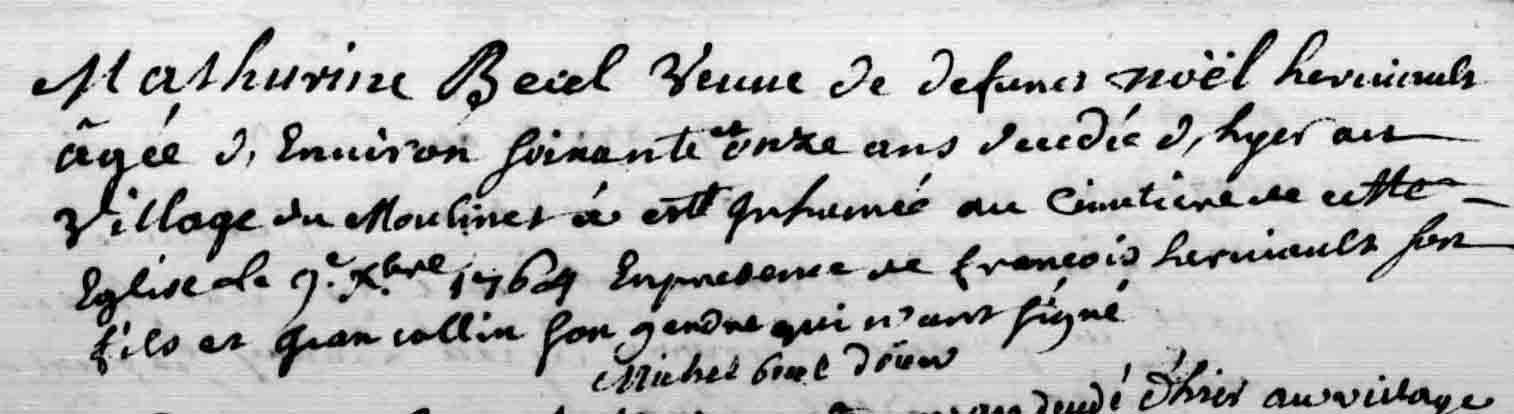 Mathurine Beiel Veuue de defunct noël heruiault
âgée d'Enuiron soixante et onze ans deceddée d'hyer au
Village du Moulinet à esté Inhumée au Cimetiere de cette
Eglise le 9.e Xbre 1764 En presence de François heruiault son
fils et Jean collin son gendre qui n'ont signé
Michel
décédé d'hier au village